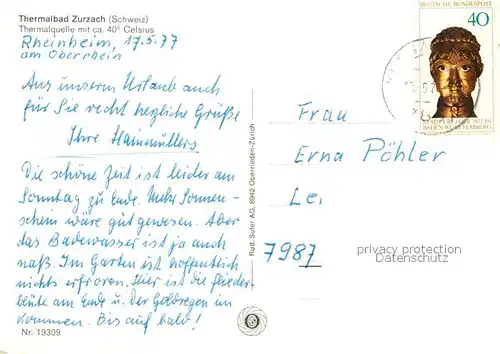 Thermalbad Zurzach (Schweiz)
Thermalquelle mit ca. 40° Celsius
Rheinheim, 17.5.77
am Oberrhein
Aus unserm Urlaub auch
für Sie recht herzliche Grüße
Ihre Hainmüllers
Die schöne Zeit ist leider am
Sonntag zu Ende. Mehr Sonnen-
schein wäre gut gewesen. Aber
das Badewasser ist ja auch
naß. Im Garten ist hoffentlich
nichts erfroren. Hier ist die Flieder-
blüte am Ende u. der Goldregen im
Kommen. Bis auf bald!
Nr. 19309
Rud. Suter AG, 8942 Oberrieden-Zürich
DEUTSCHE BUNDESPOST
40
STAUFERJAHR 1977 IN
BADEN-WÜRTTEMBERG
Frau
Erna Pöhler
Le.
7987
privacy protection
Datenschutz